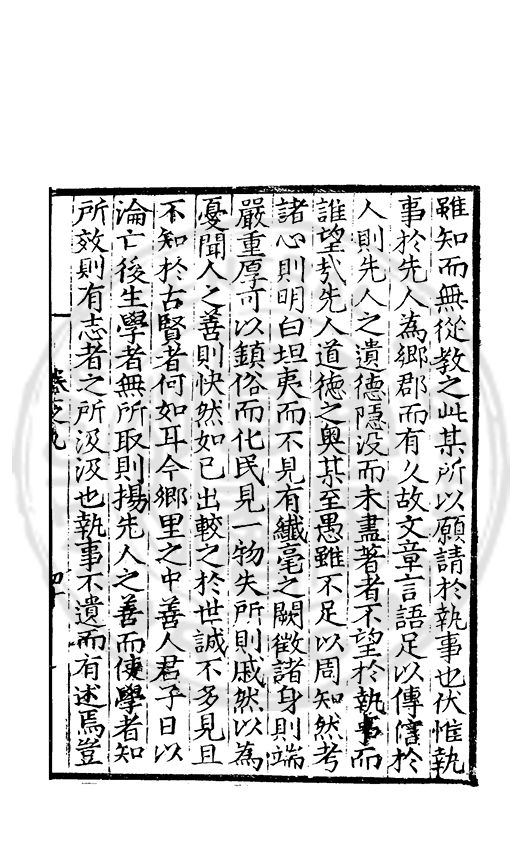 雖知而無從教之此某所以願請於執事也伏惟執
事於先人為鄉郡而有久故文章言語足以傳信於
人則先人之遺德隱没而未盡著者不望於執事而
誰望㢤先人道德之奥某至愚雖不足以周知然考
諸心則明白坦夷而不見有纖毫之闕徵諸身則端
嚴重厚可以鎮俗而化民見一物失所則戚然以為
憂聞人之善則快然如已出較之於世誠不多見且
不知於古賢者何如耳今鄉里之中善人君子日以
淪亡後生學者無所取則揚先人之善而使學者知
所效則有志者之所汲汲也執事不遺而有述焉豈
卷之九